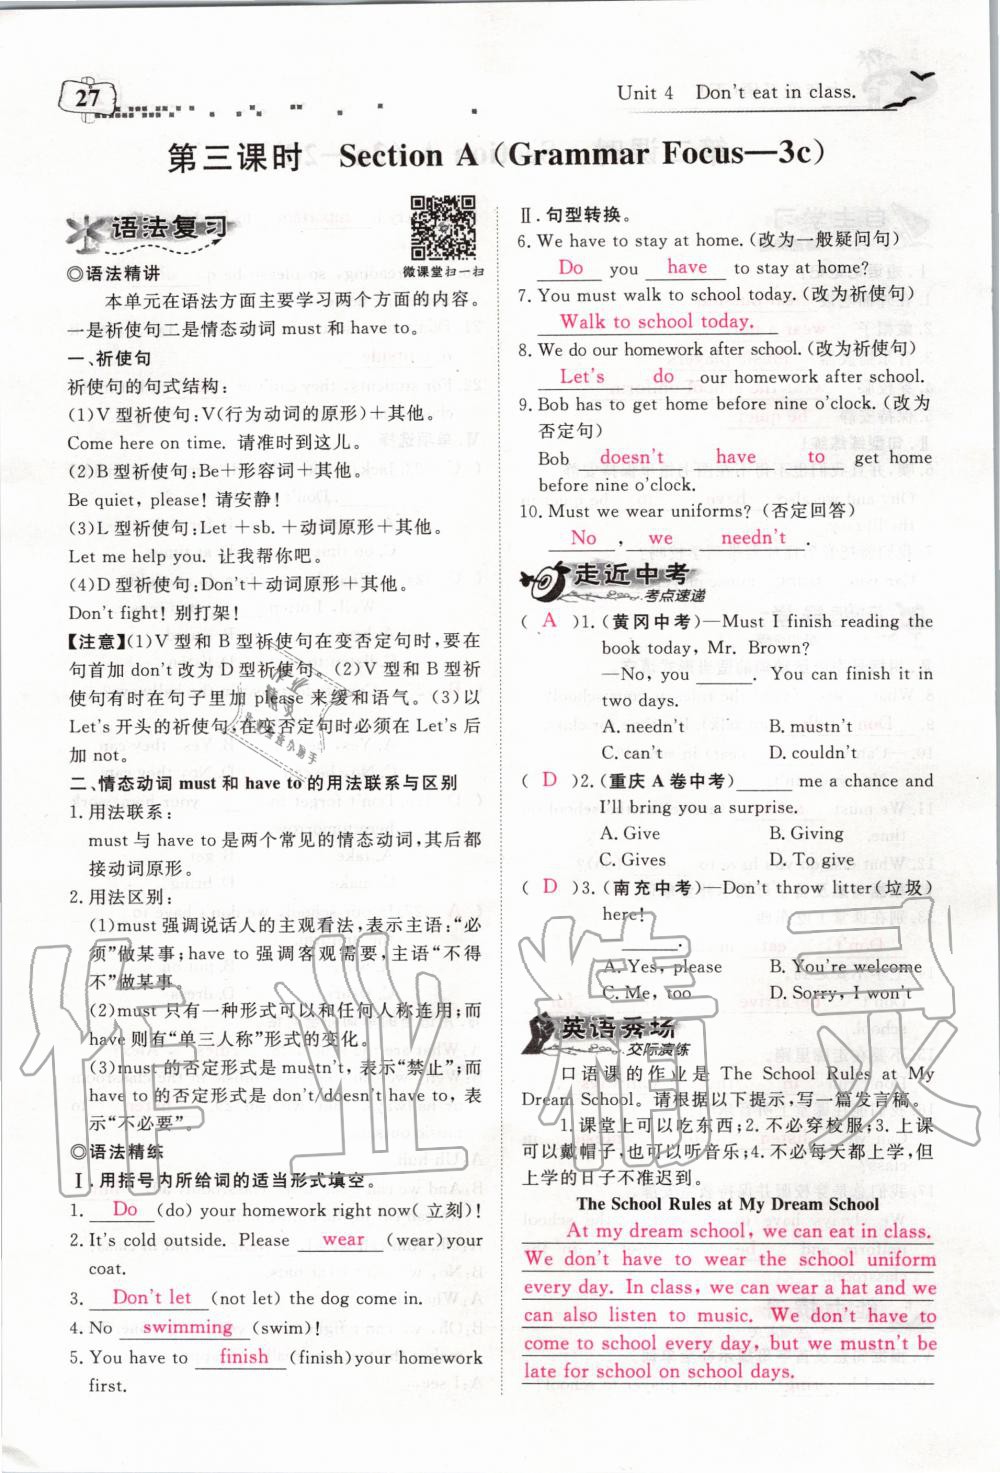 27
Unit 4　Don't eat in class.
第三课时　Section A（Grammar Focus—3c）
语法复习
微课堂扫一扫
◎语法精讲
本单元在语法方面主要学习两个方面的内容。
一是祈使句二是情态动词 must 和 have to。
一、祈使句
祈使句的句式结构:
(1)V 型祈使句:V(行为动词的原形)＋其他。
Come here on time. 请准时到这儿。
(2)B 型祈使句:Be＋形容词＋其他。
Be quiet, please! 请安静!
(3)L 型祈使句:Let ＋sb. ＋动词原形＋其他。
Let me help you. 让我帮你吧。
(4)D 型祈使句:Don't＋动词原形＋其他。
Don't fight! 别打架!
【注意】(1)V 型和 B 型祈使句在变否定句时,要在
句首加 don't 改为 D 型祈使句。(2)V 型和 B 型祈
使句有时在句子里加 please 来缓和语气。(3)以
Let's 开头的祈使句,在变否定句时必须在 Let's 后
加 not。
二、情态动词 must 和 have to 的用法联系与区别
1. 用法联系:
must 与 have to 是两个常见的情态动词,其后都
接动词原形。
2. 用法区别:
(1)must 强调说话人的主观看法,表示主语:“必
须”做某事。have to 强调客观需要,主语“不得
不”做某事。
(2)must 只有一种形式可以和任何人称连用;而
have 则有“单三人称”形式的变化。
(3)must 的否定形式是 mustn't,表示“禁止”;而
have to 的否定形式是 don't/doesn't have to, 表
示“不必要”。
◎语法精练
Ⅰ. 用括号内所给词的适当形式填空。
1. Do (do) your homework right now(立刻)!
2. It's cold outside. Please wear (wear) your
coat.
3. Don't let (not let) the dog come in.
4. No swimming (swim)!
5. You have to finish (finish) your homework
first.
Ⅱ. 句型转换。
6. We have to stay at home. (改为一般疑问句)
Do you have to stay at home?
7. You must walk to school today. (改为祈使句)
Walk to school today.
8. We do our homework after school. (改为祈使句)
Let's do our homework after school.
9. Bob has to get home before nine o'clock. (改为
否定句)
Bob doesn't have to get home
before nine o'clock.
10. Must we wear uniforms? (否定回答)
No , we needn't .
走近中考
考点速递
( A )1. (黄冈中考)—Must I finish reading the
book today, Mr. Brown?
—No, you ______. You can finish it in
two days.
A. needn't B. mustn't
C. can't D. couldn't
( D )2. (重庆 A 卷中考) ______ me a chance and
I'll bring you a surprise.
A. Give B. Giving
C. Gives D. To give
( D )3. (南充中考)—Don't throw litter(垃圾)
here!
—______.
A. Yes, please B. You're welcome
C. Me, too D. Sorry, I won't
英语秀场
交际演练
口语课的作业是 The School Rules at My
Dream School。请根据以下提示,写一篇发言稿。
1. 课堂上可以吃东西;2. 不必穿校服;3. 上课
可以戴帽子,也可以听音乐;4. 不必每天都上学,但
上学的日子不准迟到。
The School Rules at My Dream School
At my dream school, we can eat in class.
We don't have to wear the school uniform
every day. In class, we can wear a hat and we
can also listen to music. We don't have to
come to school every day, but we mustn't be
late for school on school days.
作业精灵